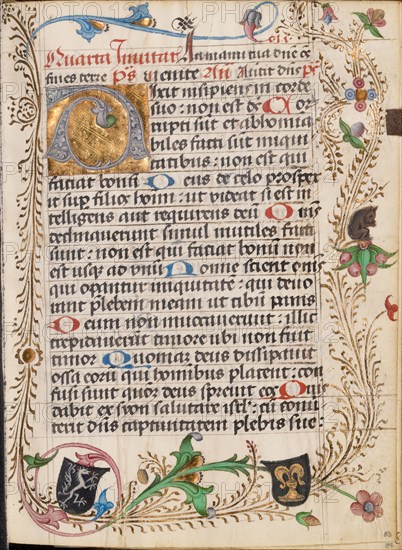 Quarta Invitat
fines terre ps venite An Avertit dns ps
Dixit insipiens in corde
suo: non est deus Cor
rupti sūt et abhomīa
biles facti sūt īiqui
tatibus: non est qui
faciat bonū Deus de celo prosper
it sup filios hoīm: ut videat si est in
telligens aut requirens deū Om̄s
declinaverunt simul inutiles facti
sunt: non est qui faciat bonū non
est usq̨ ad unū Nonne scient om̄s
qui opantur iniquitatē: qui devo
rant plebem meam ut cibū panis
Deum non invocaverunt: illuc
trepidaverūt timore ubi non fuit
timor Quoniam deus dissipavit
ossa eorū qui hominibus placent: con
fusi sunt quoniā deus sprevit eos Quis
dabit ex syon salutare isrl: cū conv
terit dn̄s captivitatem plebis sue: